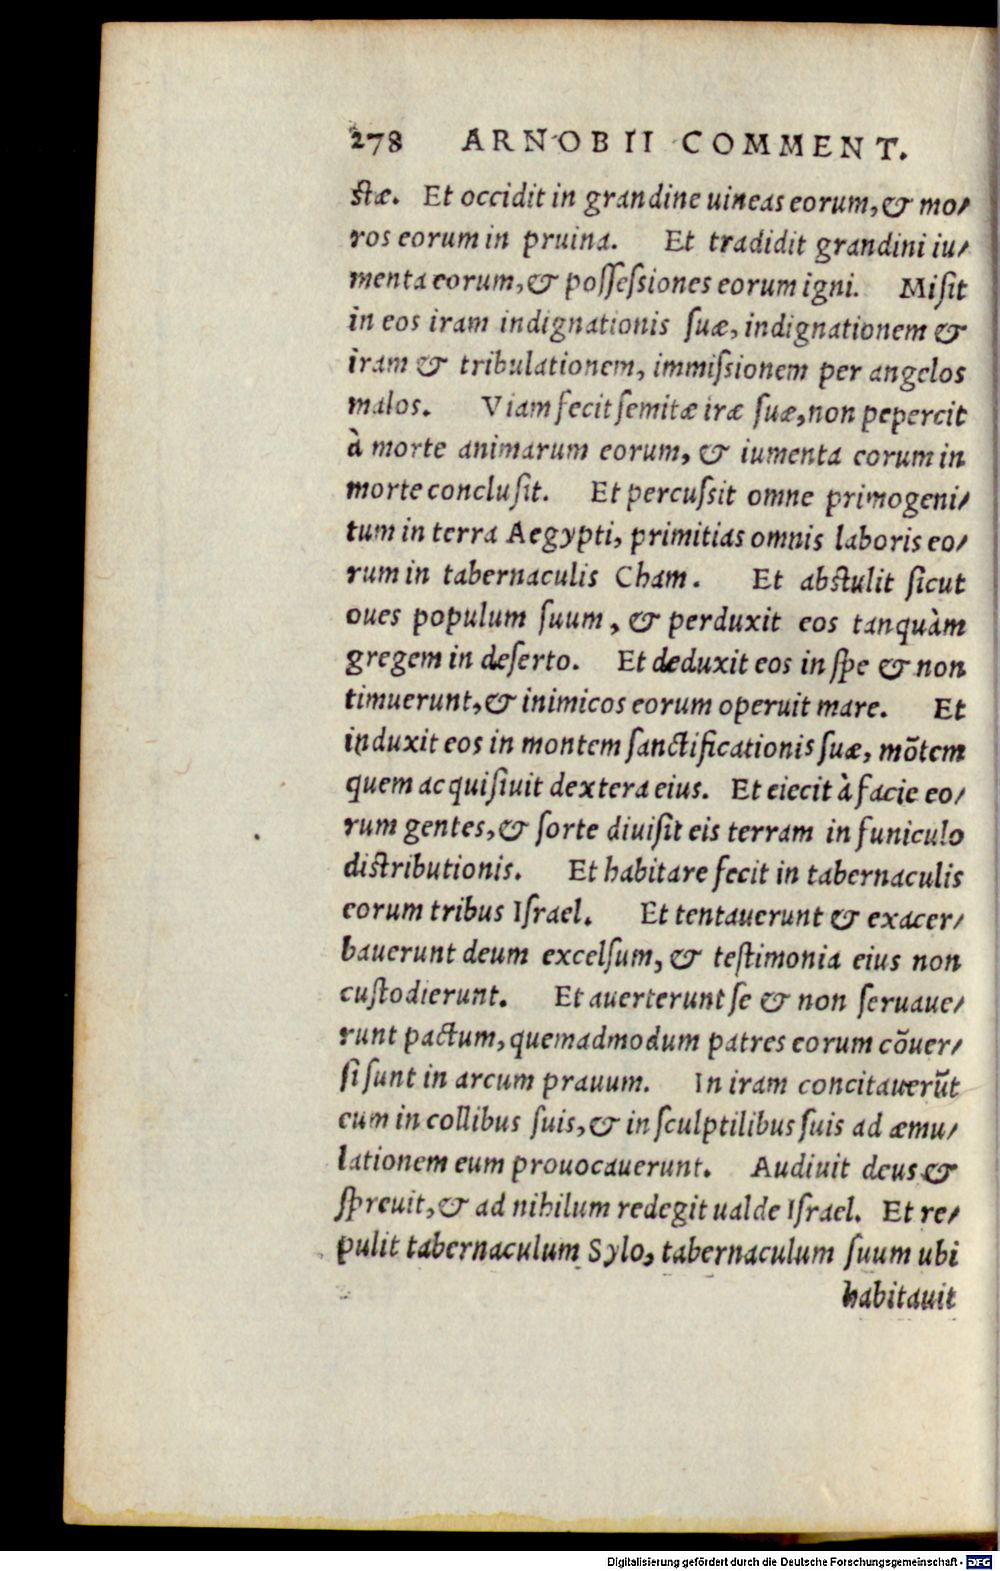 278 ARNOBII COMMENT.
stæ. Et occidit in grandine uineas eorum, & mo/
ros eorum in pruina. Et tradidit grandini iu/
menta eorum, & possessiones eorum igni. Misit
in eos iram indignationis suæ, indignationem &
iram & tribulationem, immissionem per angelos
malos. Viam fecit semitæ iræ suæ, non pepercit
à morte animarum eorum, & iumenta eorum in
morte conclusit. Et percussit omne primogeni/
tum in terra Aegypti, primitias omnis laboris eo/
rum in tabernaculis Cham. Et abstulit sicut
oues populum suum, & perduxit eos tanquàm
gregem in deserto. Et deduxit eos in spe & non
timuerunt, & inimicos eorum operuit mare. Et
induxit eos in montem sanctificationis suæ, mõtem
quem acquisiuit dextera eius. Et eiecit à facie eo/
rum gentes, & sorte diuisit eis terram in funiculo
distributionis. Et habitare fecit in tabernaculis
eorum tribus Israel. Et tentauerunt & exacer/
bauerunt deum excelsum, & testimonia eius non
custodierunt. Et auerterunt se & non seruaue/
runt pactum, quemadmodum patres eorum cõuer/
si sunt in arcum prauum. In iram concitauerũt
eum in collibus suis, & in sculptilibus suis ad æmu/
lationem eum prouocauerunt. Audiuit deus &
spreuit, & ad nihilum redegit ualde Israel. Et re/
pulit tabernaculum Sylo, tabernaculum suum ubi
habitauit
Digitalisierung gefördert durch die Deutsche Forschungsgemeinschaft - DFG